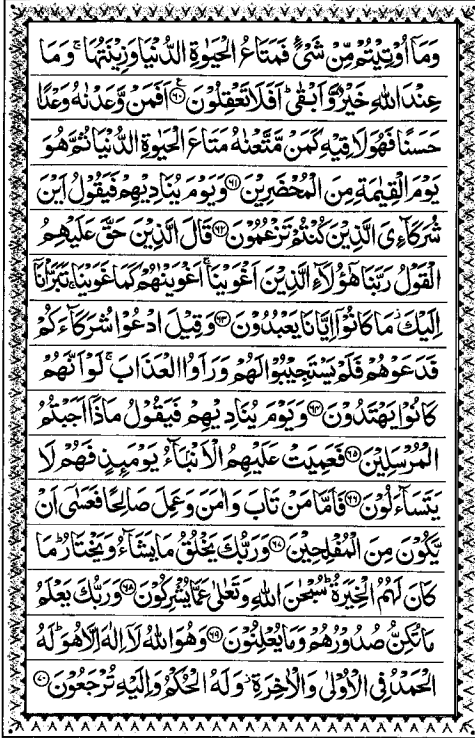 وَمَاۤ اُوْتِيْتُمْ مِّنْ شَيْءٍ فَمَتَاعُ الْحَيٰوةِ الدُّنْيَا وَزِيْنَتُهَا ۚ وَمَا
عِنْدَ اللهِ خَيْرٌ وَّاَبْقٰى ؕ اَفَلَا تَعْقِلُوْنَ ﴿٦٠﴾ اَفَمَنْ وَّعَدْنٰهُ وَعْدًا
حَسَنًا فَهُوَ لَاقِيْهِ كَمَنْ مَّتَّعْنٰهُ مَتَاعَ الْحَيٰوةِ الدُّنْيَا ثُمَّ هُوَ
يَوْمَ الْقِيٰمَةِ مِنَ الْمُحْضَرِيْنَ ﴿٦١﴾ وَيَوْمَ يُنَادِيْهِمْ فَيَقُوْلُ اَيْنَ
شُرَكَآءِيَ الَّذِيْنَ كُنْتُمْ تَزْعُمُوْنَ ﴿٦٢﴾ قَالَ الَّذِيْنَ حَقَّ عَلَيْهِمُ
الْقَوْلُ رَبَّنَا هٰۤؤُلَآءِ الَّذِيْنَ اَغْوَيْنَا ۚ اَغْوَيْنٰهُمْ كَمَا غَوَيْنَا ۚ تَبَرَّاْنَاۤ
اِلَيْكَ ؗ مَا كَانُوْۤا اِيَّانَا يَعْبُدُوْنَ ﴿٦٣﴾ وَقِيْلَ ادْعُوْا شُرَكَآءَكُمْ
فَدَعَوْهُمْ فَلَمْ يَسْتَجِيْبُوْا لَهُمْ وَرَاَوُا الْعَذَابَ ۚ لَوْ اَنَّهُمْ
كَانُوْا يَهْتَدُوْنَ ﴿٦٤﴾ وَيَوْمَ يُنَادِيْهِمْ فَيَقُوْلُ مَاذَاۤ اَجَبْتُمُ
الْمُرْسَلِيْنَ ﴿٦٥﴾ فَعَمِيَتْ عَلَيْهِمُ الْاَنْۢبَآءُ يَوْمَئِذٍ فَهُمْ لَا
يَتَسَآءَلُوْنَ ﴿٦٦﴾ فَاَمَّا مَنْ تَابَ وَاٰمَنَ وَعَمِلَ صَالِحًا فَعَسٰۤى اَنْ
يَّكُوْنَ مِنَ الْمُفْلِحِيْنَ ﴿٦٧﴾ وَرَبُّكَ يَخْلُقُ مَا يَشَآءُ وَيَخْتَارُ ؕ مَا
كَانَ لَهُمُ الْخِيَرَةُ ؕ سُبْحٰنَ اللهِ وَتَعٰلٰى عَمَّا يُشْرِكُوْنَ ﴿٦٨﴾ وَرَبُّكَ يَعْلَمُ
مَا تُكِنُّ صُدُوْرُهُمْ وَمَا يُعْلِنُوْنَ ﴿٦٩﴾ وَهُوَ اللهُ لَاۤ اِلٰهَ اِلَّا هُوَ ؕ لَهُ
الْحَمْدُ فِي الْاُوْلٰى وَالْاٰخِرَةِ ؗ وَلَهُ الْحُكْمُ وَاِلَيْهِ تُرْجَعُوْنَ ﴿٧٠﴾